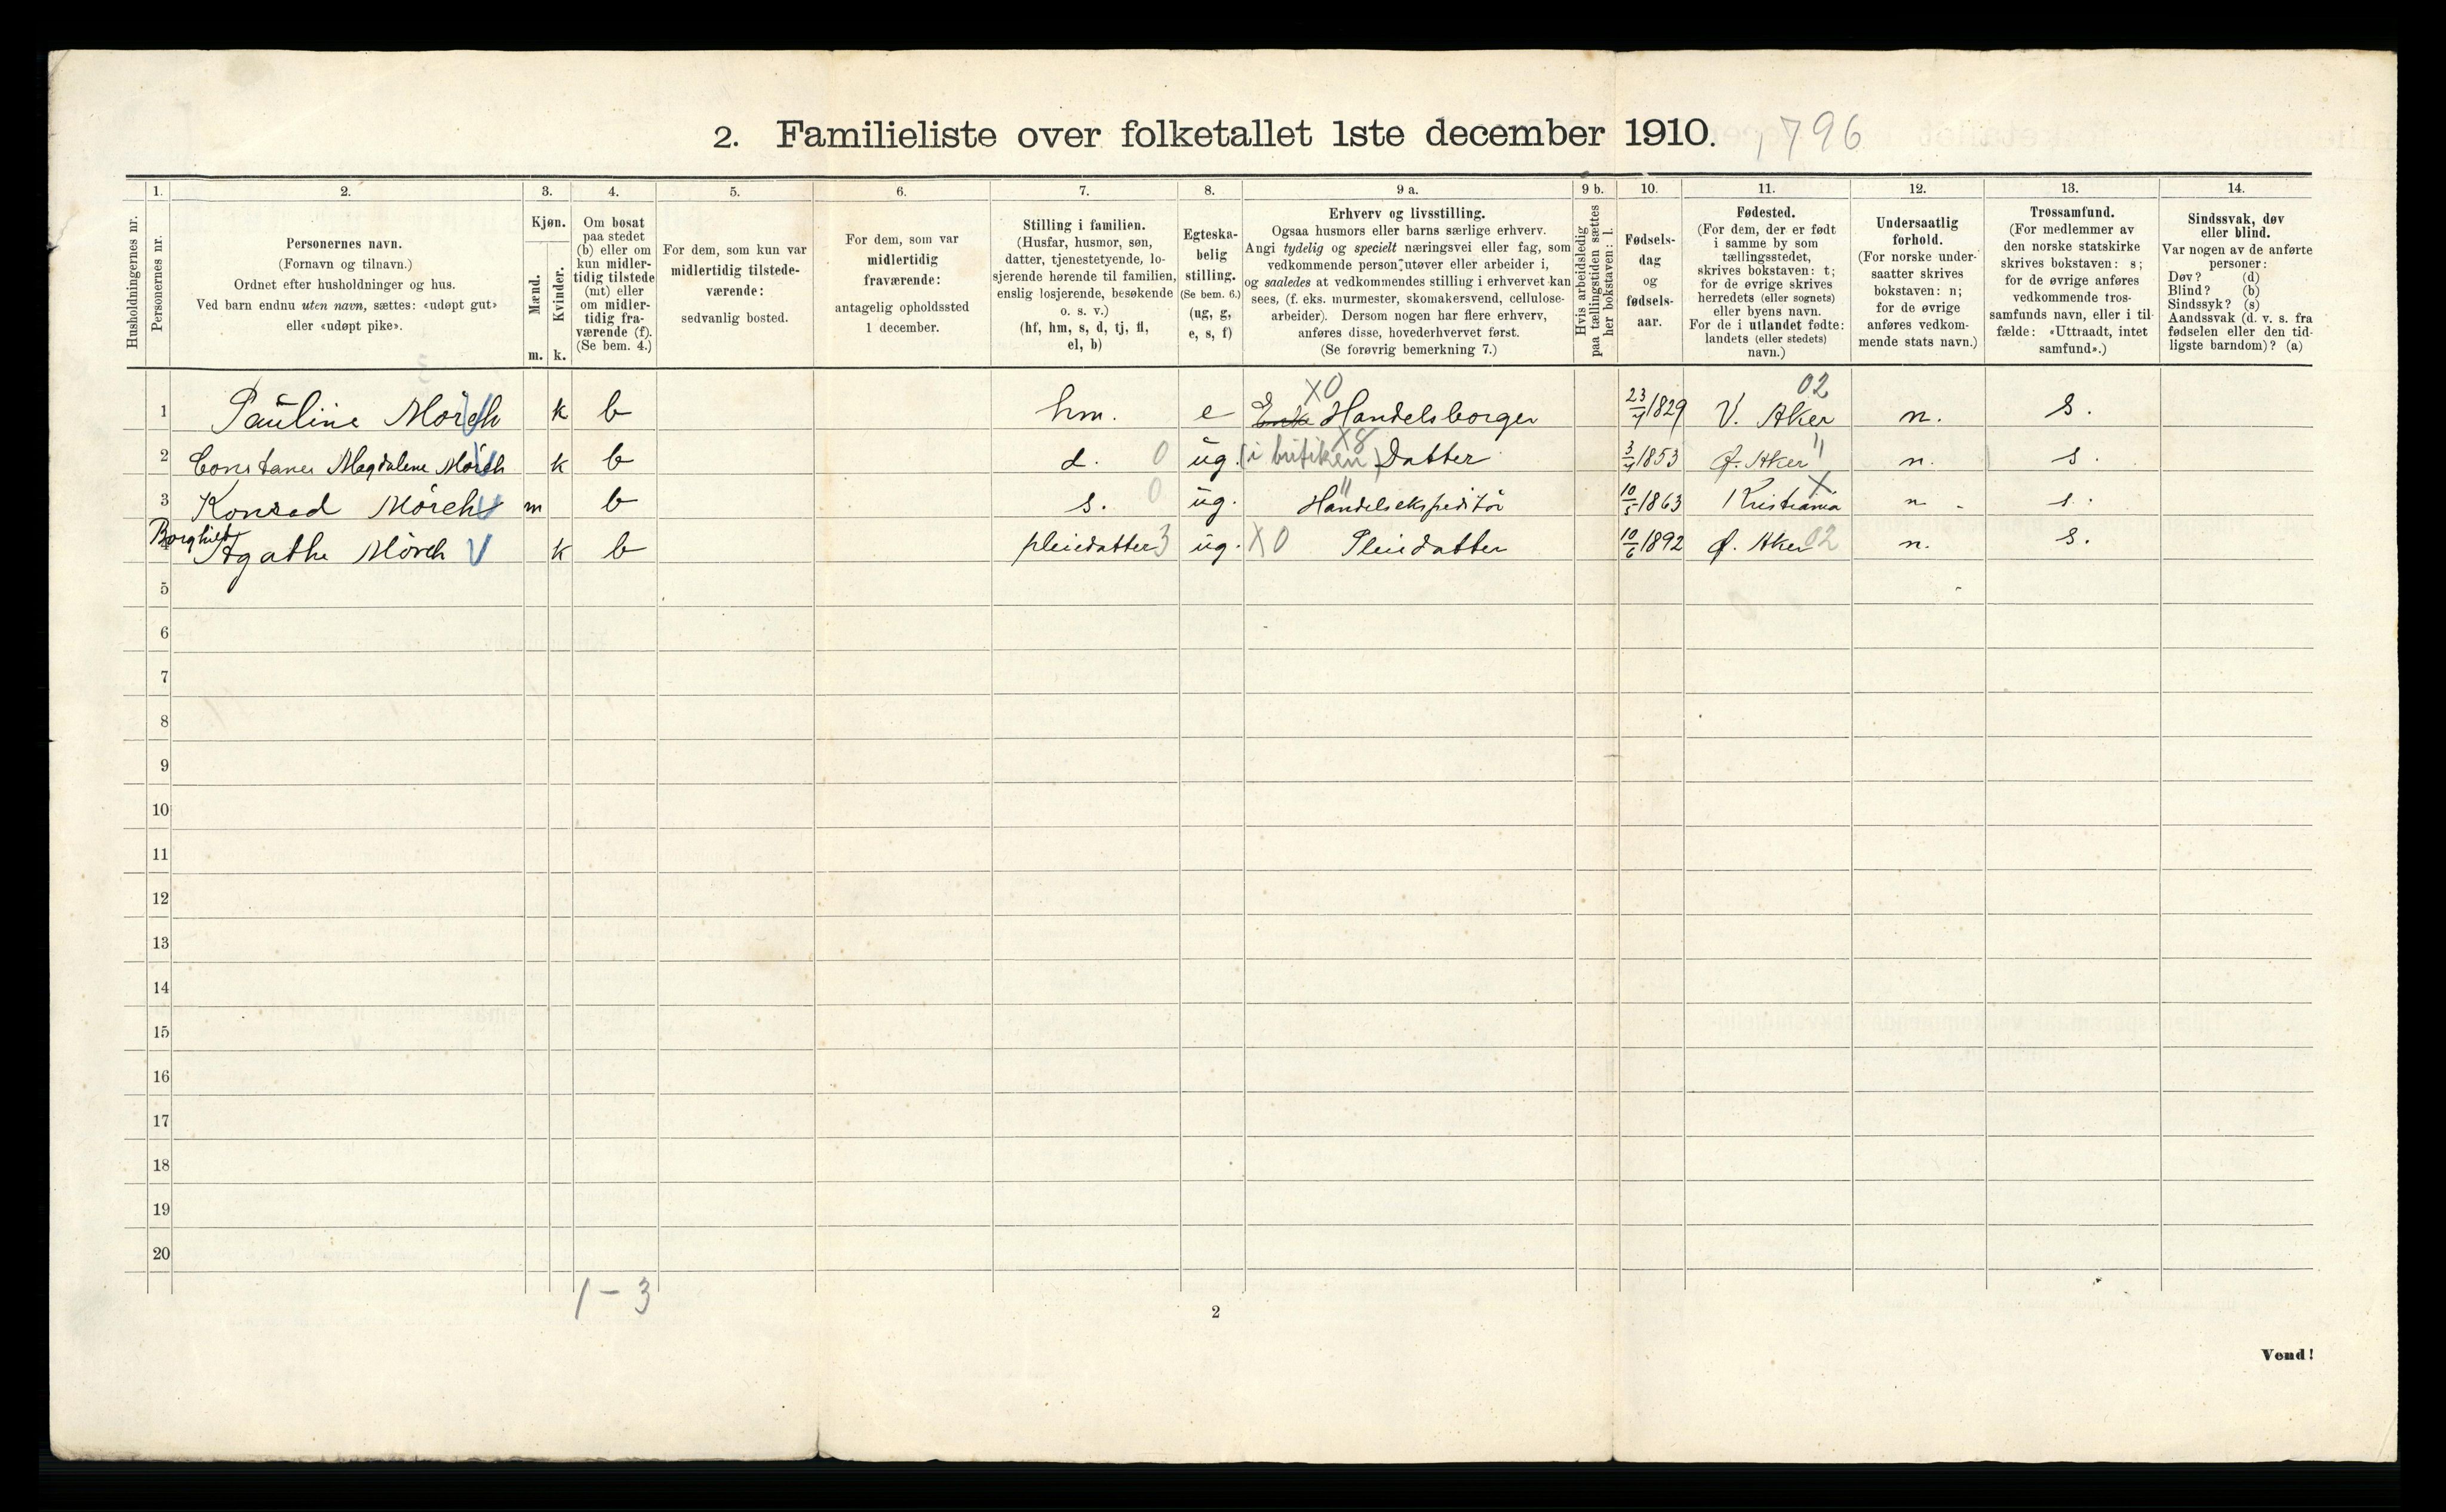 2. Familieliste over folketallet 1ste december 1910. 796
1. 2. 3. 4. 5. 6. 7. 8. 9 a. 9 b. 10. 11. 12. 13. 14.
Husholdningernes nr.
Personernes nr.
Personernes navn.
(Fornavn og tilnavn.)
Ordnet efter husholdninger og hus.
Ved barn endnu uten navn, sættes: «udøpt gut»
eller «udøpt pike».
Kjøn.
Mænd.
m.
Kvinder.
k.
Om bosat
paa stedet
(b) eller om
kun midler-
tidig tilstede
(mt) eller
om midler-
tidig fra-
værende (f).
(Se bem. 4.)
For dem, som kun var
midlertidig tilstede-
værende:
sedvanlig bosted.
For dem, som var
midlertidig
fraværende:
antagelig opholdssted
1 december.
Stilling i familien.
(Husfar, husmor, søn,
datter, tjenestetyende, lo-
sjerende hørende til familien,
enslig losjerende, besøkende
o. s. v.)
(hf, hm, s, d, tj, fl,
el, b)
Egteska-
belig
stilling.
(Se bem. 6.)
(ug, g,
e, s, f)
Erhverv og livsstilling.
Ogsaa husmors eller barns særlige erhverv.
Angi tydelig og specielt næringsvei eller fag, som
vedkommende person utøver eller arbeider i,
og saaledes at vedkommendes stilling i erhvervet kan
sees, (f. eks. murmester, skomakersvend, cellulose-
arbeider). Dersom nogen har flere erhverv,
anføres disse, hovederhvervet først.
(Se forøvrig bemerkning 7.)
Hvis arbeidsledig
paa tællingstiden sættes
her bokstaven: l.
Fødsels-
dag
og
fødsels-
aar.
Fødested.
(For dem, der er født
i samme by som
tællingsstedet,
skrives bokstaven: t;
for de øvrige skrives
herredets (eller sognets)
eller byens navn.
For de i utlandet fødte:
landets (eller stedets)
navn.)
Undersaatlig
forhold.
(For norske under-
saatter skrives
bokstaven: n;
for de øvrige
anføres vedkom-
mende stats navn.)
Trossamfund.
(For medlemmer av
den norske statskirke
skrives bokstaven: s;
for de øvrige anføres
vedkommende tros-
samfunds navn, eller i til-
fælde: «Uttraadt, intet
samfund».)
Sindssvak, døv
eller blind.
Var nogen av de anførte
personer:
Døv? (d)
Blind? (b)
Sindssyk? (s)
Aandssvak (d. v. s. fra
fødselen eller den tid-
ligste barndom)? (a)
X0 02
1 Pauline Mörch V k b hm. e Enke Handelsborger 23/4 1829 V. Aker n. s.
X8 "
2 Constance Magdalene Mörch V k b d. 0 ug. (i butiken) Datter 3/4 1853 Ø. Aker n. s.
" X
3 Konrad Mörch V m b s. 0 ug. Handelsekspeditör 10/5 1863 Kristiania n. s.
Borghild
4 Agathe Mörch V k b pleiedatter 3 ug. X0 Pleiedatter 10/6 1892 Ø. Aker 02 n. s.
5
6
7
8
9
10
11
12
13
14
15
16
17
18
19
20
1 - 3
2
Vend!